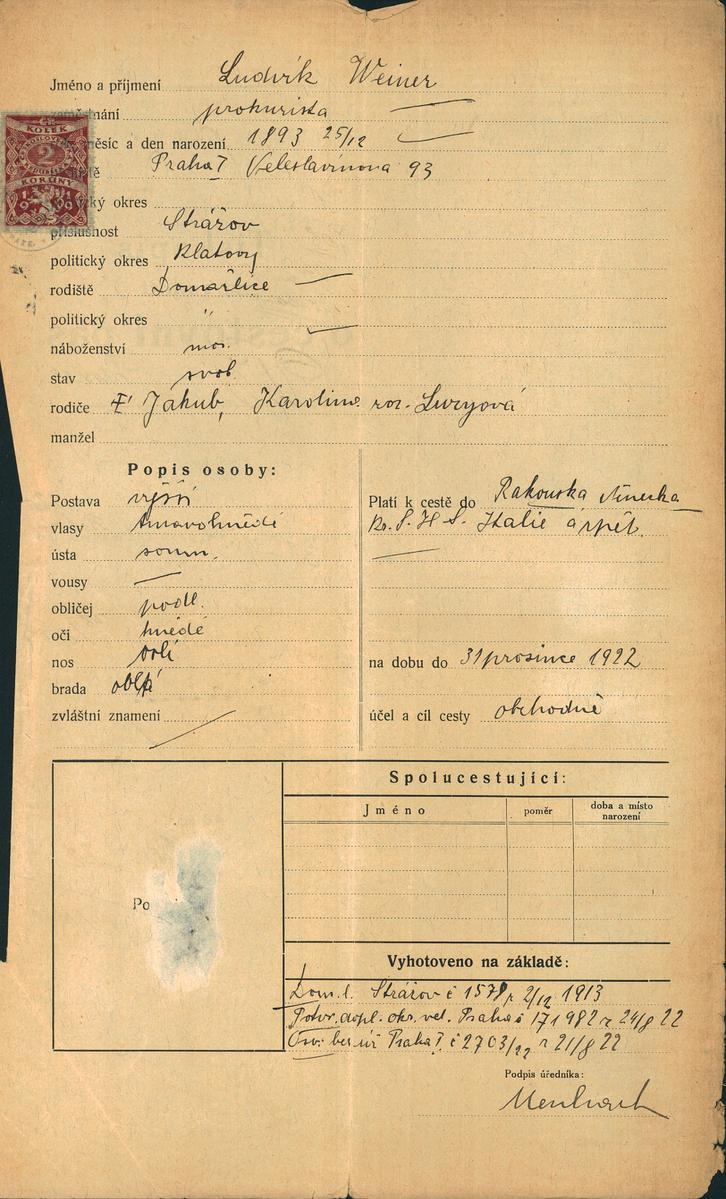 Jméno a příjmení Ludvík Weiner
prokurista
KOLEK
2
KORUNY
měsíc a den narození 1893 25/12
Praha I Veleslavínova 93
okres
příslušnost Strážov
politický okres Klatovy
rodiště Domažlice
politický okres "
náboženství mos.
stav svob.
rodiče Jakub, Karolina roz.
manžel
Popis osoby:
Postava vyšší
vlasy tmavohnědé
ústa soum.
vousy —
obličej podl.
oči hnědé
nos orlí
brada oblá
zvláštní znamení
Platí k cestě do Rakouska Německa
Kr. S. H. S. Italie a zpět.
na dobu do 31 prosince 1922
účel a cíl cesty obchodně
Spolucestující:
Jméno poměr doba a místo narození
Po
Vyhotoveno na základě:
Dom. l. Strážov č 1578 z 2/12 1913
Potvr. dopl. okr. vel. Praha č 171982 z 24/8 22
ber úř Praha I č 2703/22 z 21/8 22
Podpis úředníka: